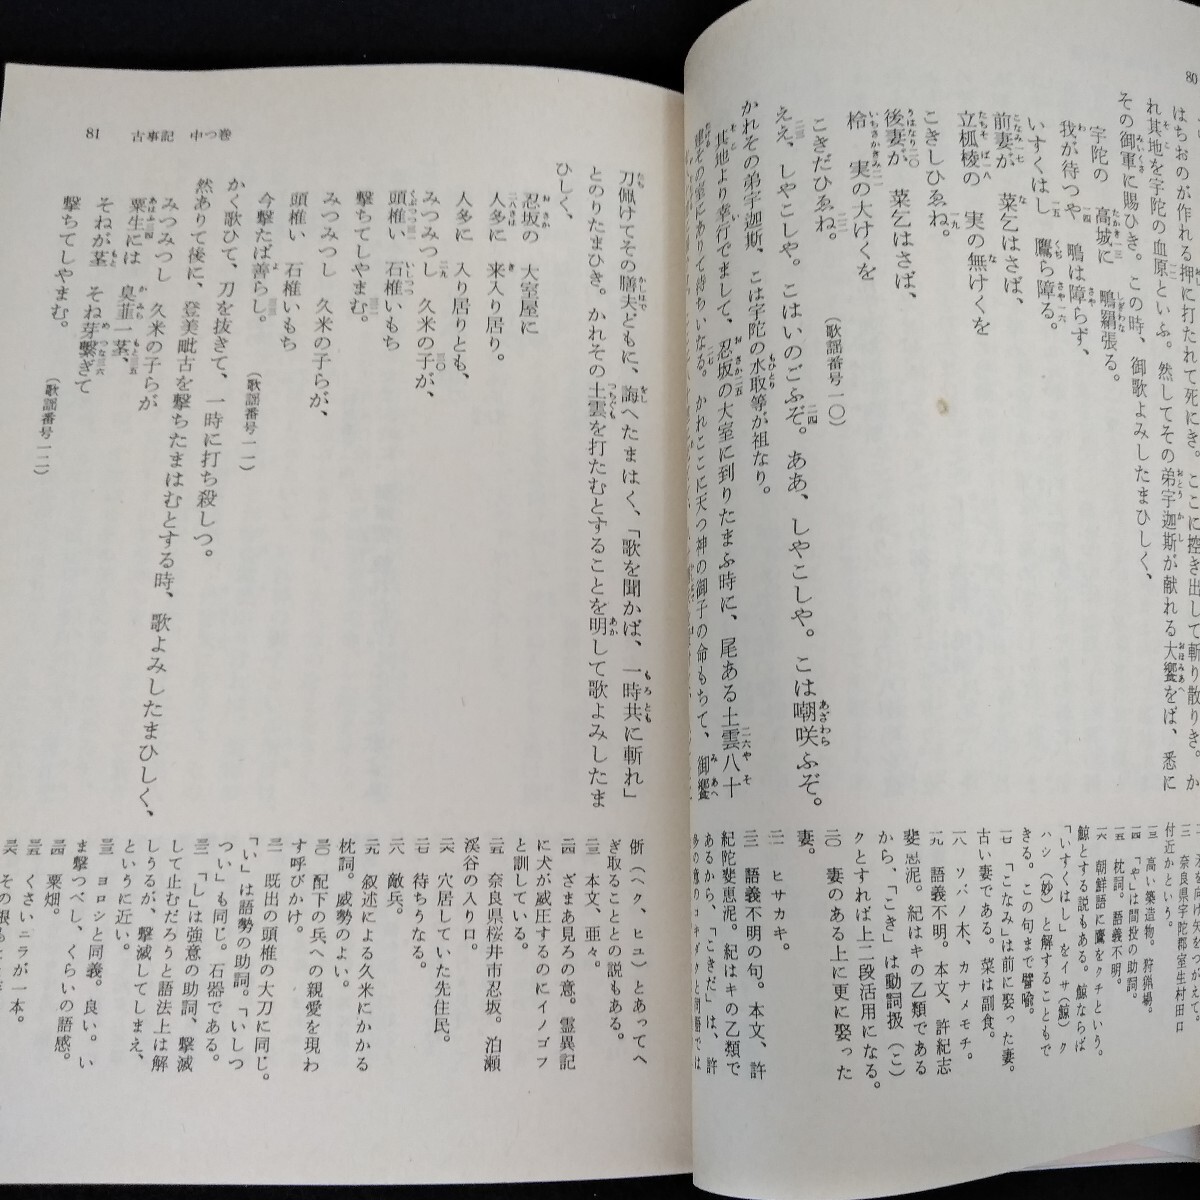 80
はちおのが作れる押に打たれて死にき。ここに控き出して斬り散りき。か
れ其地を宇陀の血原といふ。然してその弟宇迦斯が献れる大饗をば、悉に
その御軍に賜ひき。この時、御歌よみしたまひしく、
宇陀の 高城に 鴫羂張る。
我が待つや 鴫は障らず、
いすくはし 鷹ら障る。
前妻が 菜乞はさば、
立柧棱の 実の無けくを
こきしひゑね。
後妻が 菜乞はさば、
柃 実の大けくを
こきだひゑね。
（歌謡番号一〇）
ええ、しやこしや。こはいのごふぞ。ああ、しやこしや。こは嘲咲ふぞ。
かれその弟宇迦斯、こは宇陀の水取等が祖なり。
其地より幸行でまして、忍坂の大室に到りたまふ時に、尾ある土雲八十
建その室にありて待ちいなる。かれここに天つ神の御子の命もちて、御饗
付近かという。
三 宇陀郡室生村田口
一三 高い築造物。狩猟場。
一四 「や」は間投の助詞。
一五 枕詞。語義不明。
一六 朝鮮語に鷹をクチという。
鯨とする説もある。鯨ならば
「いすくはし」をイサ（鯨）ク
ハシ（妙）と解することもで
きる。この句まで譬喩。
一七 「こなみ」は前に娶った妻。
古い妻である。菜は副食。
一八 ソバノ木、カナメモチ。
一九 語義不明。本文、許紀志
斐恵泥。紀はキの乙類である
から、「こき」は動詞扱（こ）
クとすれば上二段活用になる。
二〇 妻のある上に更に娶った
妻。
二一 ヒサカキ。
二二 語義不明の句。本文、許
紀陀斐恵泥。紀はキの乙類で
あるから、「こきだ」は、許
多の意のコキダクと同語では
81 古事記 中つ巻
刀佩けてその膳夫どもに、誨へたまはく、「歌を聞かば、一時共に斬れ」
とのりたまひき。かれその土雲を打たむとすることを明して歌よみしたま
ひしく、
忍坂の 大室屋に
人多に 来入り居り。
人多に 入り居りとも、
みつみつし 久米の子が、
頭椎い 石椎いもち
撃ちてしやまむ。
みつみつし 久米の子らが、
頭椎い 石椎いもち
今撃たば善らし。
（歌謡番号一一）
かく歌ひて、刀を抜きて、一時に打ち殺しつ。
然ありて後に、登美毗古を撃ちたまはむとする時、歌よみしたまひしく、
みつみつし 久米の子らが
粟生には 臭韮一茎、
そねが茎 そね芽繋ぎて
撃ちてしやまむ。
（歌謡番号一二）
斱（ヘク、ヒユ）とあってヘ
ぎ取ることとの説もある。
二三 本文、亜々。
二四 ざまあ見ろの意。霊異記
に犬が威圧するのにイノゴフ
と訓している。
二五 奈良県桜井市忍坂。泊瀬
渓谷の入り口。
二六 穴居していた先住民。
二七 待ちうなる。
二八 敵兵。
二九 叙述による久米にかかる
枕詞。威勢のよい。
三〇 配下の兵への親愛を現わ
す呼びかけ。
三一 既出の頭椎の大刀に同じ。
「い」は語勢の助詞。「いしつ
つい」も同じ。石器である。
三二 「し」は強意の助詞、撃滅
して止むだろうと語法上は解
しうるが、撃滅してしまえ、
というに近い。
三三 ヨロシと同義。良い。い
ま撃つべし、くらいの語感。
三四 粟畑。
三五 くさいニラが一本。